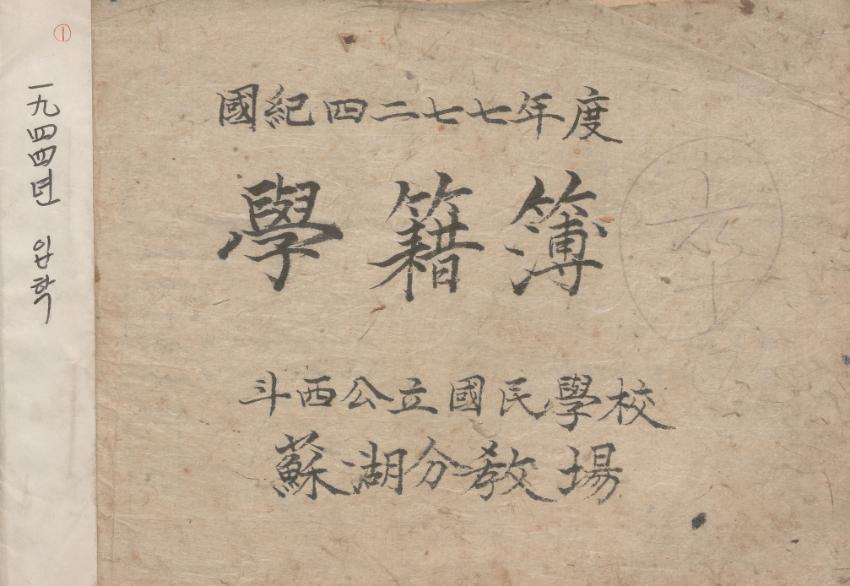 ①
一九四四년 입학
國紀四二七七年度
學籍簿
斗西公立國民學校
蘇湖分教場